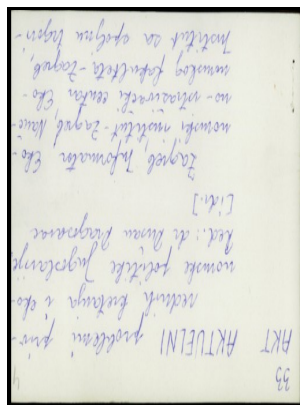 33
AKT AKTUELNI problemi priv-
rednih kretanja i eko-
nomske politike Jugoslavije
Red.: dr Dušan Dragosavac
[i dr.]
Zagreb, Informator, Eko-
nomski institut - Zagreb, Nauč-
no-istraživački centar Eko-
nomskog fakulteta - Zagreb,
Institut za spoljnu trgovi-